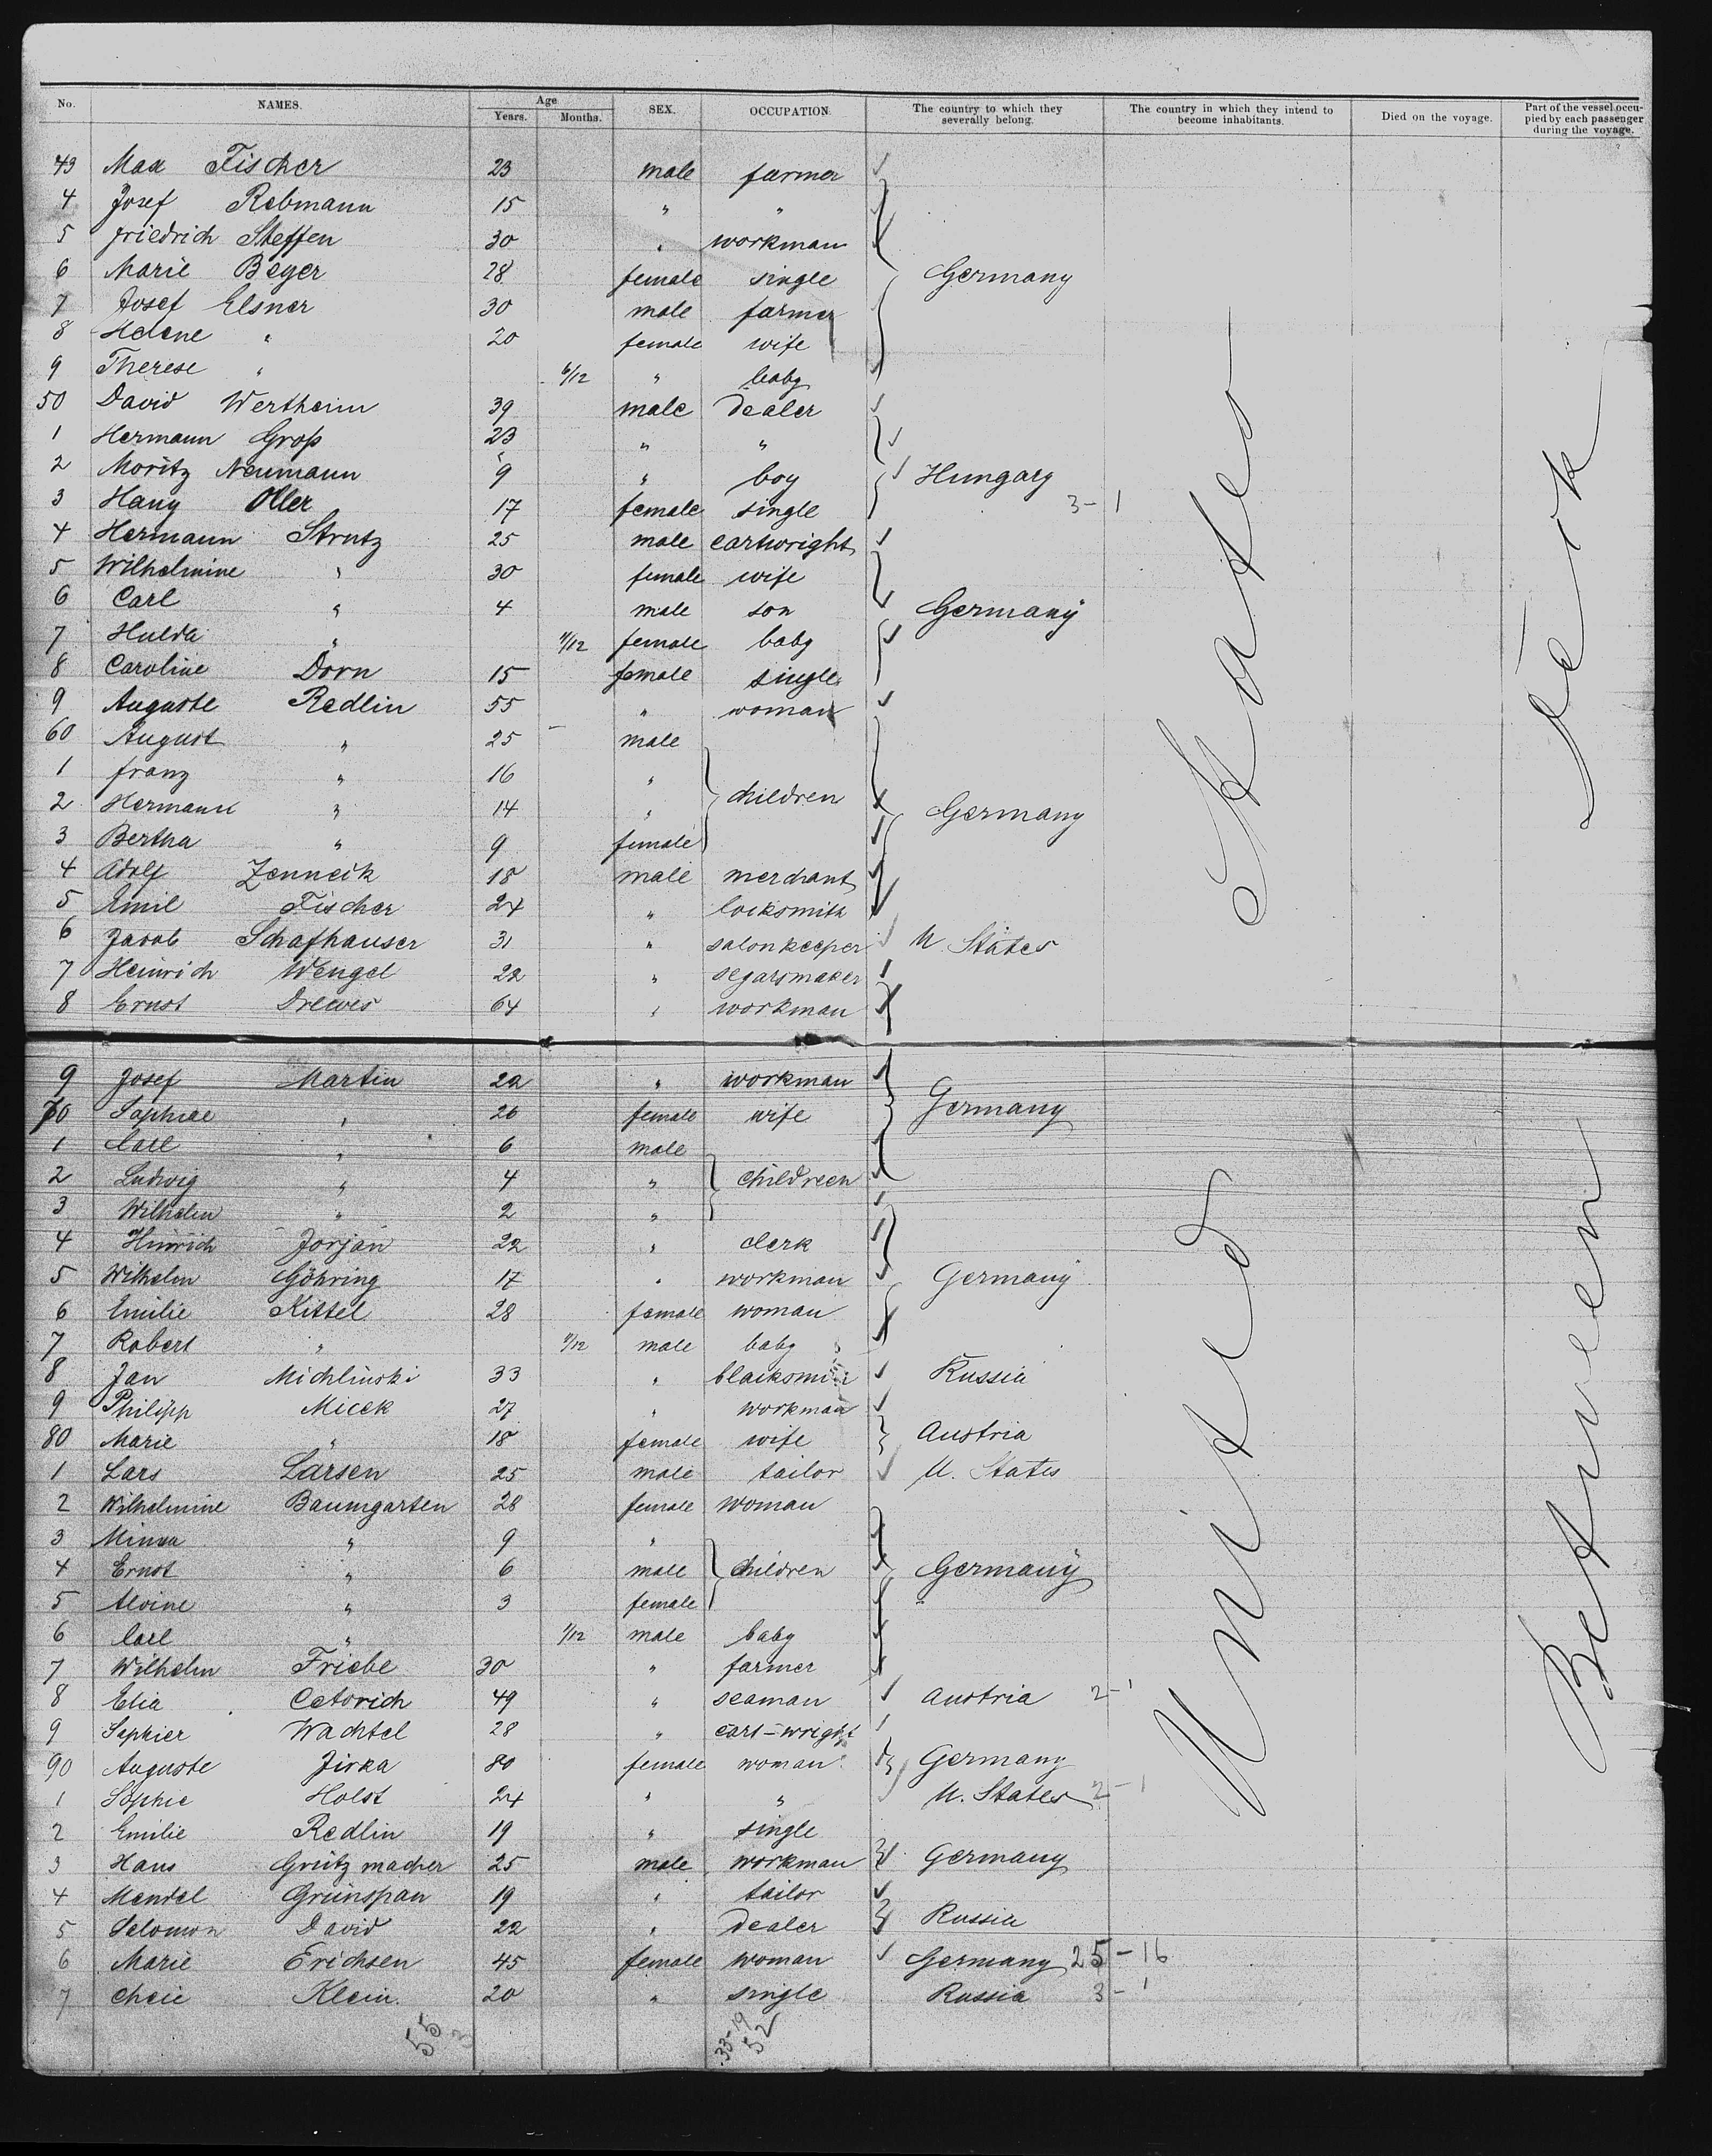 No. NAMES. Age Years. Months. SEX. OCCUPATION. The country to which they severally belong. The country in which they intend to become inhabitants. Died on the voyage. Part of the vessel occupied by each passenger during the voyage.
43 Max Fischer 23 male farmer
4 Josef Rebmann 15 " "
5 Friedrich Steffen 30 " workman
6 Marie Beyer 28 female single Germany
7 Josef Elsner 30 male farmer
8 Helene " 20 female wife
9 Therese " 6/12 " baby
50 David Wertheim 39 male dealer
1 Hermann Groß 23 " "
2 Moritz Neumann 9 " boy Hungary
3 Hany Oller 17 female single 3-1
4 Hermann Strutz 25 male cartwright
5 Wilhelmine " 30 female wife
6 Carl " 4 male son Germany
7 Hulda " 11/12 female baby
8 Caroline Dorn 15 female single
9 Auguste Redlin 55 " woman
60 August " 25 male
1 Franz " 16 "
2 Hermann " 14 " children Germany
3 Bertha " 9 female
4 Adolf Zenneck 18 male merchant
5 Emil Fischer 24 " locksmith
6 Jacob Schafhauser 31 " salonkeeper U. States
7 Heinrich Wengel 22 " segarsmaker
8 Ernst Drewes 64 " workman
9 Josef Martin 22 " workman
70 Sophiae " 26 female wife Germany
1 Carl " 6 male
2 Ludwig " 4 " childreen
3 Wilhelm " 2 "
4 Hinrich Jorjan 22 " clerk
5 Wilhelm Göhring 17 " workman Germany
6 Emilie Kittel 28 female woman
7 Robert " 11/12 male baby
8 Jan Michlinski 33 " Russia
9 Philipp Micek 27 " workman
80 Marie " 18 female wife Austria
1 Lars Larsen 25 male tailor U. States
2 Wilhelmine Baumgarten 28 female woman
3 Minna " 9 "
4 Ernst " 6 male children Germany
5 Alvine " 3 female
6 Carl " 1/12 male baby
7 Wilhelm Friebe 30 " farmer
8 Elia Cetovich 49 " seaman Austria 2-1
9 Wachtel 28 " cart-wright
90 Auguste Jirka 80 female woman Germany
1 Sophie Holst 24 " " U. States 2-1
2 Emilie Redlin 19 " single
3 Hans Grützmacher 25 male workman Germany
4 Mendel Grünspan 19 " tailor
5 Salomon David 22 " dealer Russia
6 Marie Erichsen 45 female woman Germany 25-16
7 Cheie Klein. 20 " single Russia 3-1
55
33-19
52
United States
Between Deck